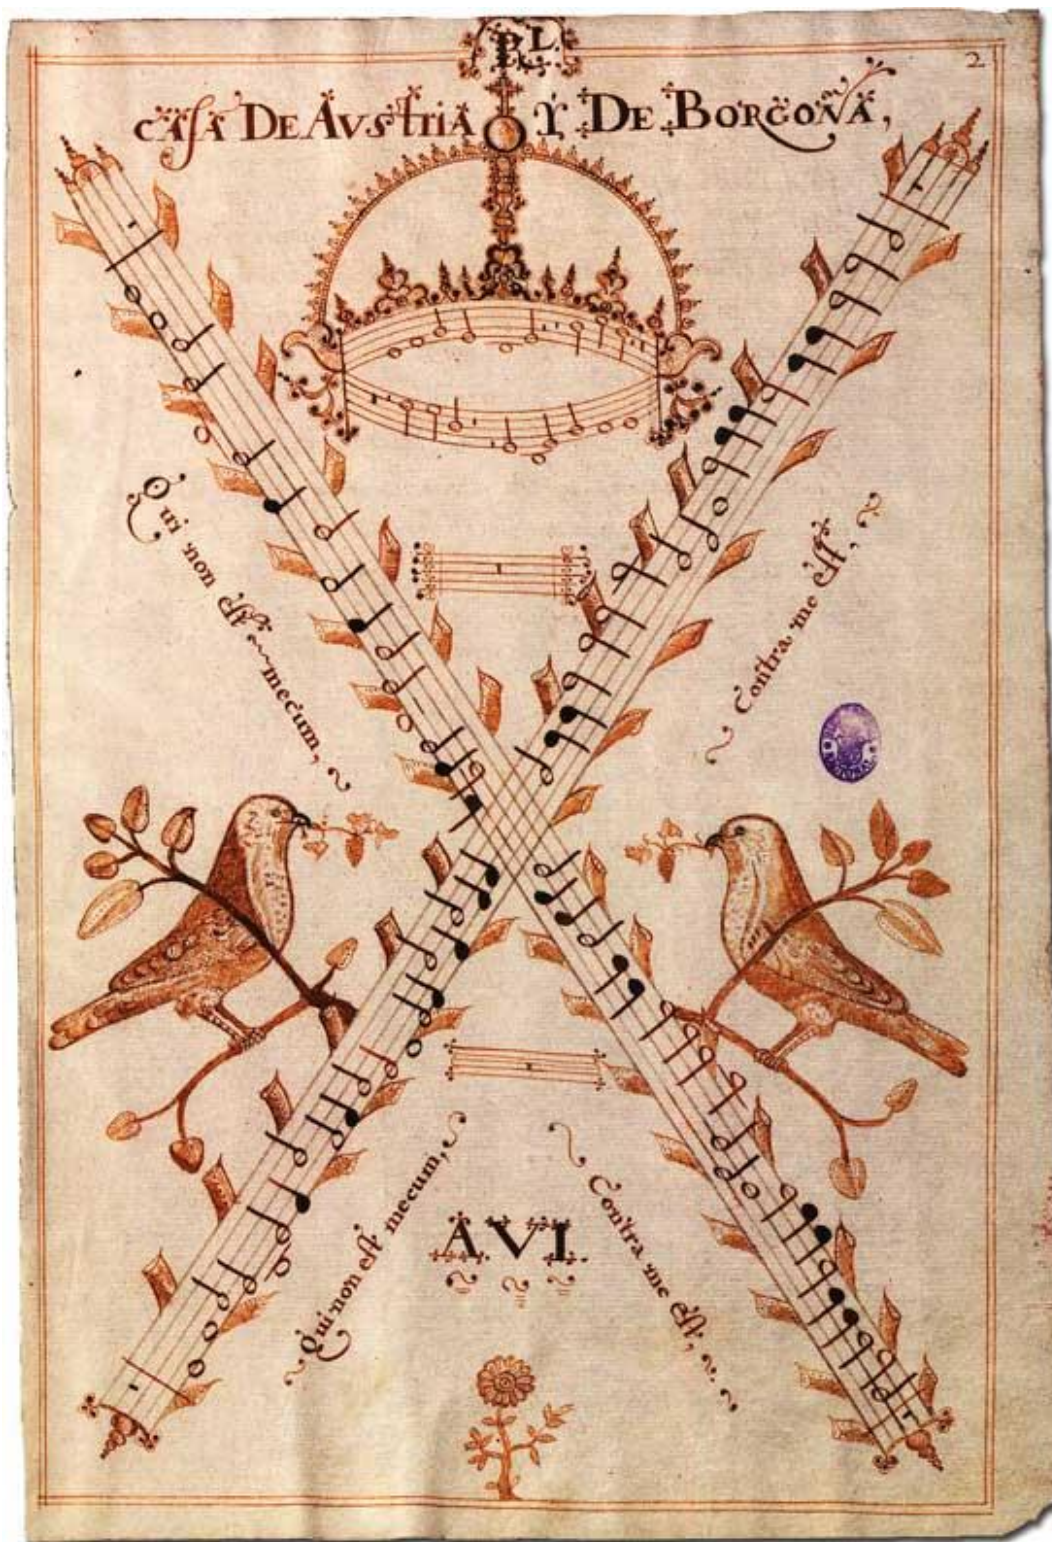 RL.
2
Casa De Austria Y De Borgoña,
Qui non est mecum,
Contra me est,
Qui non est mecum,
Contra me est,
A.V.I.